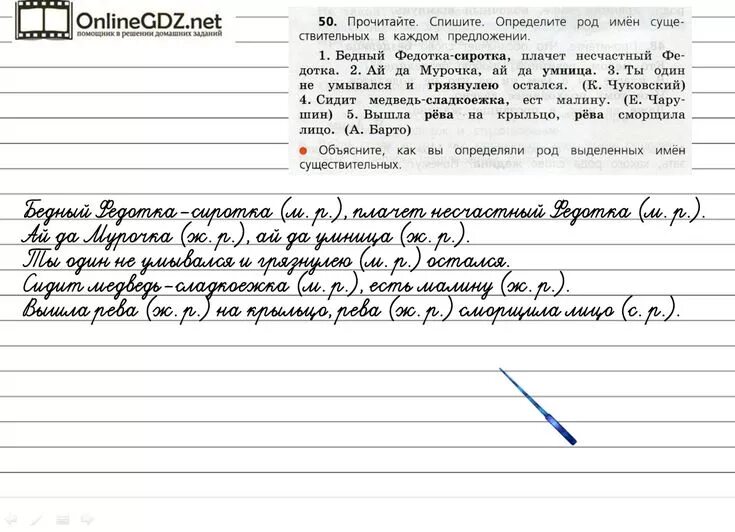 OnlineGDZ.net
помощник в решении домашних заданий
50. Прочитайте. Спишите. Определите род имён суще-
ствительных в каждом предложении.
1. Бедный Федотка-сиротка, плачет несчастный Фе-
дотка. 2. Ай да Мурочка, ай да умница. 3. Ты один
не умывался и грязнулею остался. (К. Чуковский)
4. Сидит медведь-сладкоежка, ест малину. (Е. Чару-
шин) 5. Вышла рёва на крыльцо, рёва сморщила
лицо. (А. Барто)
Объясните, как вы определяли род выделенных имён
существительных.
Бедный Федотка-сиротка (м. р.), плачет несчастный Федотка (м. р.).
Ай да Мурочка (ж. р.), ай да умница (ж. р.).
Ты один не умывался и грязнулею (м. р.) остался.
Сидит медведь-сладкоежка (м. р.), есть малину (ж. р.).
Вышла рева (ж. р.) на крыльцо, рева (ж. р.) сморщила лицо (с. р.).